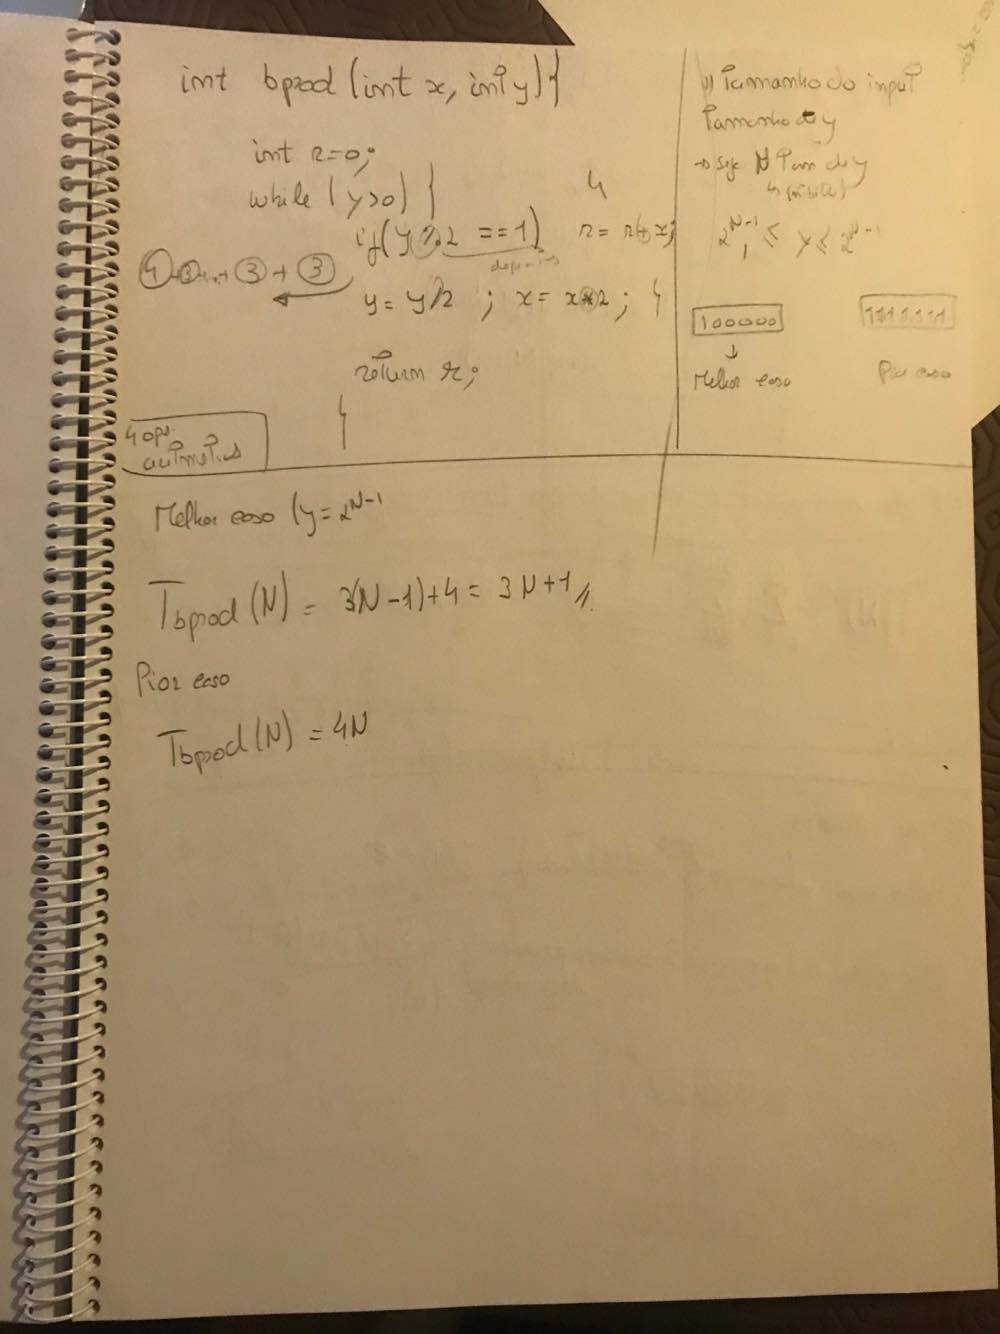 int bprod (int x, int y) {
int r=0;
while (y>0) {
if (y%2 == 1) r = r+x;
y = y/2 ; x = x*2 ; }
return r;
}
4 + 3 + 3
4 ops.
aritméticas
Tamanho do input
Tamanho de y
→ Seja N Tam de y
2^N-1 ≤ y ≤ 2^N-1
100000
↓
Melhor caso
1111111
Pior caso
Melhor caso (y = 2^N-1
Tbprod (N) = 3(N-1)+4 = 3N+1 //
Pior caso
Tbprod (N) = 4N